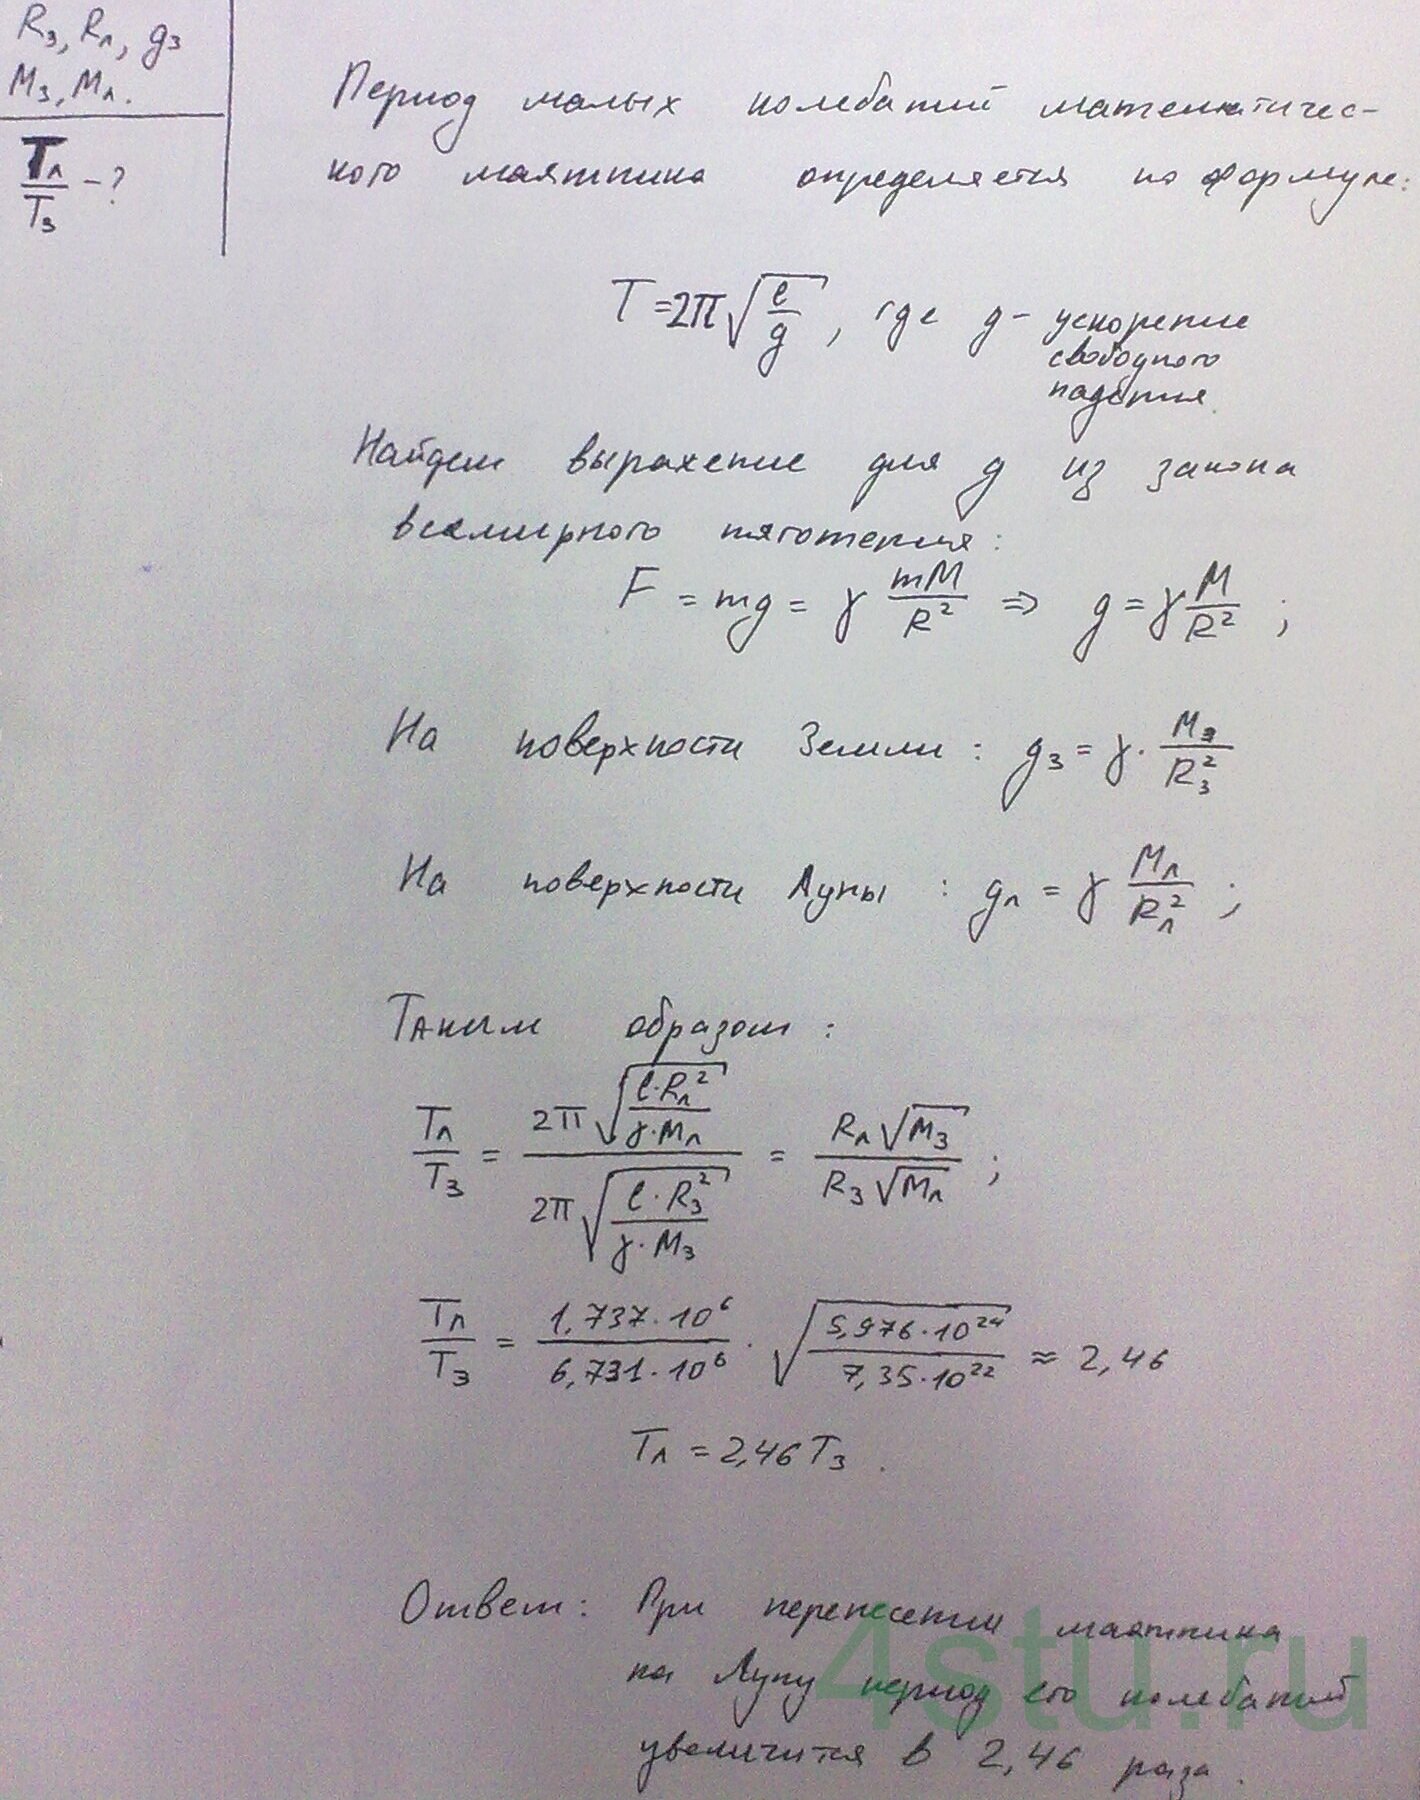 R₃, Rл, g₃
M₃, Mл.
Tл/T₃ - ?
Период малых колебаний математичес-
кого маятника определяется по формуле:
T = 2π√(l/g), где g - ускорение
свободного
падения.
Найдем выражение для g из закона
всемирного тяготения:
F = mg = γ mM/R² ⇒ g = γ M/R² ;
На поверхности Земли : g₃ = γ · M₃/R₃²
На поверхности Луны : gл = γ Mл/Rл² ;
Таким образом :
Tл/T₃ = (2π√(l·Rл²/(γ·Mл)))/(2π√(l·R₃²/(γ·M₃))) = Rл√M₃/(R₃√Mл) ;
Tл/T₃ = (1,737·10⁶)/(6,731·10⁶) · √(5,976·10²⁴/(7,35·10²²)) ≈ 2,46
Tл = 2,46 T₃ .
Ответ: При перенесении маятника
на Луну период его колебаний
увеличится в 2,46 раза.
4stu.ru